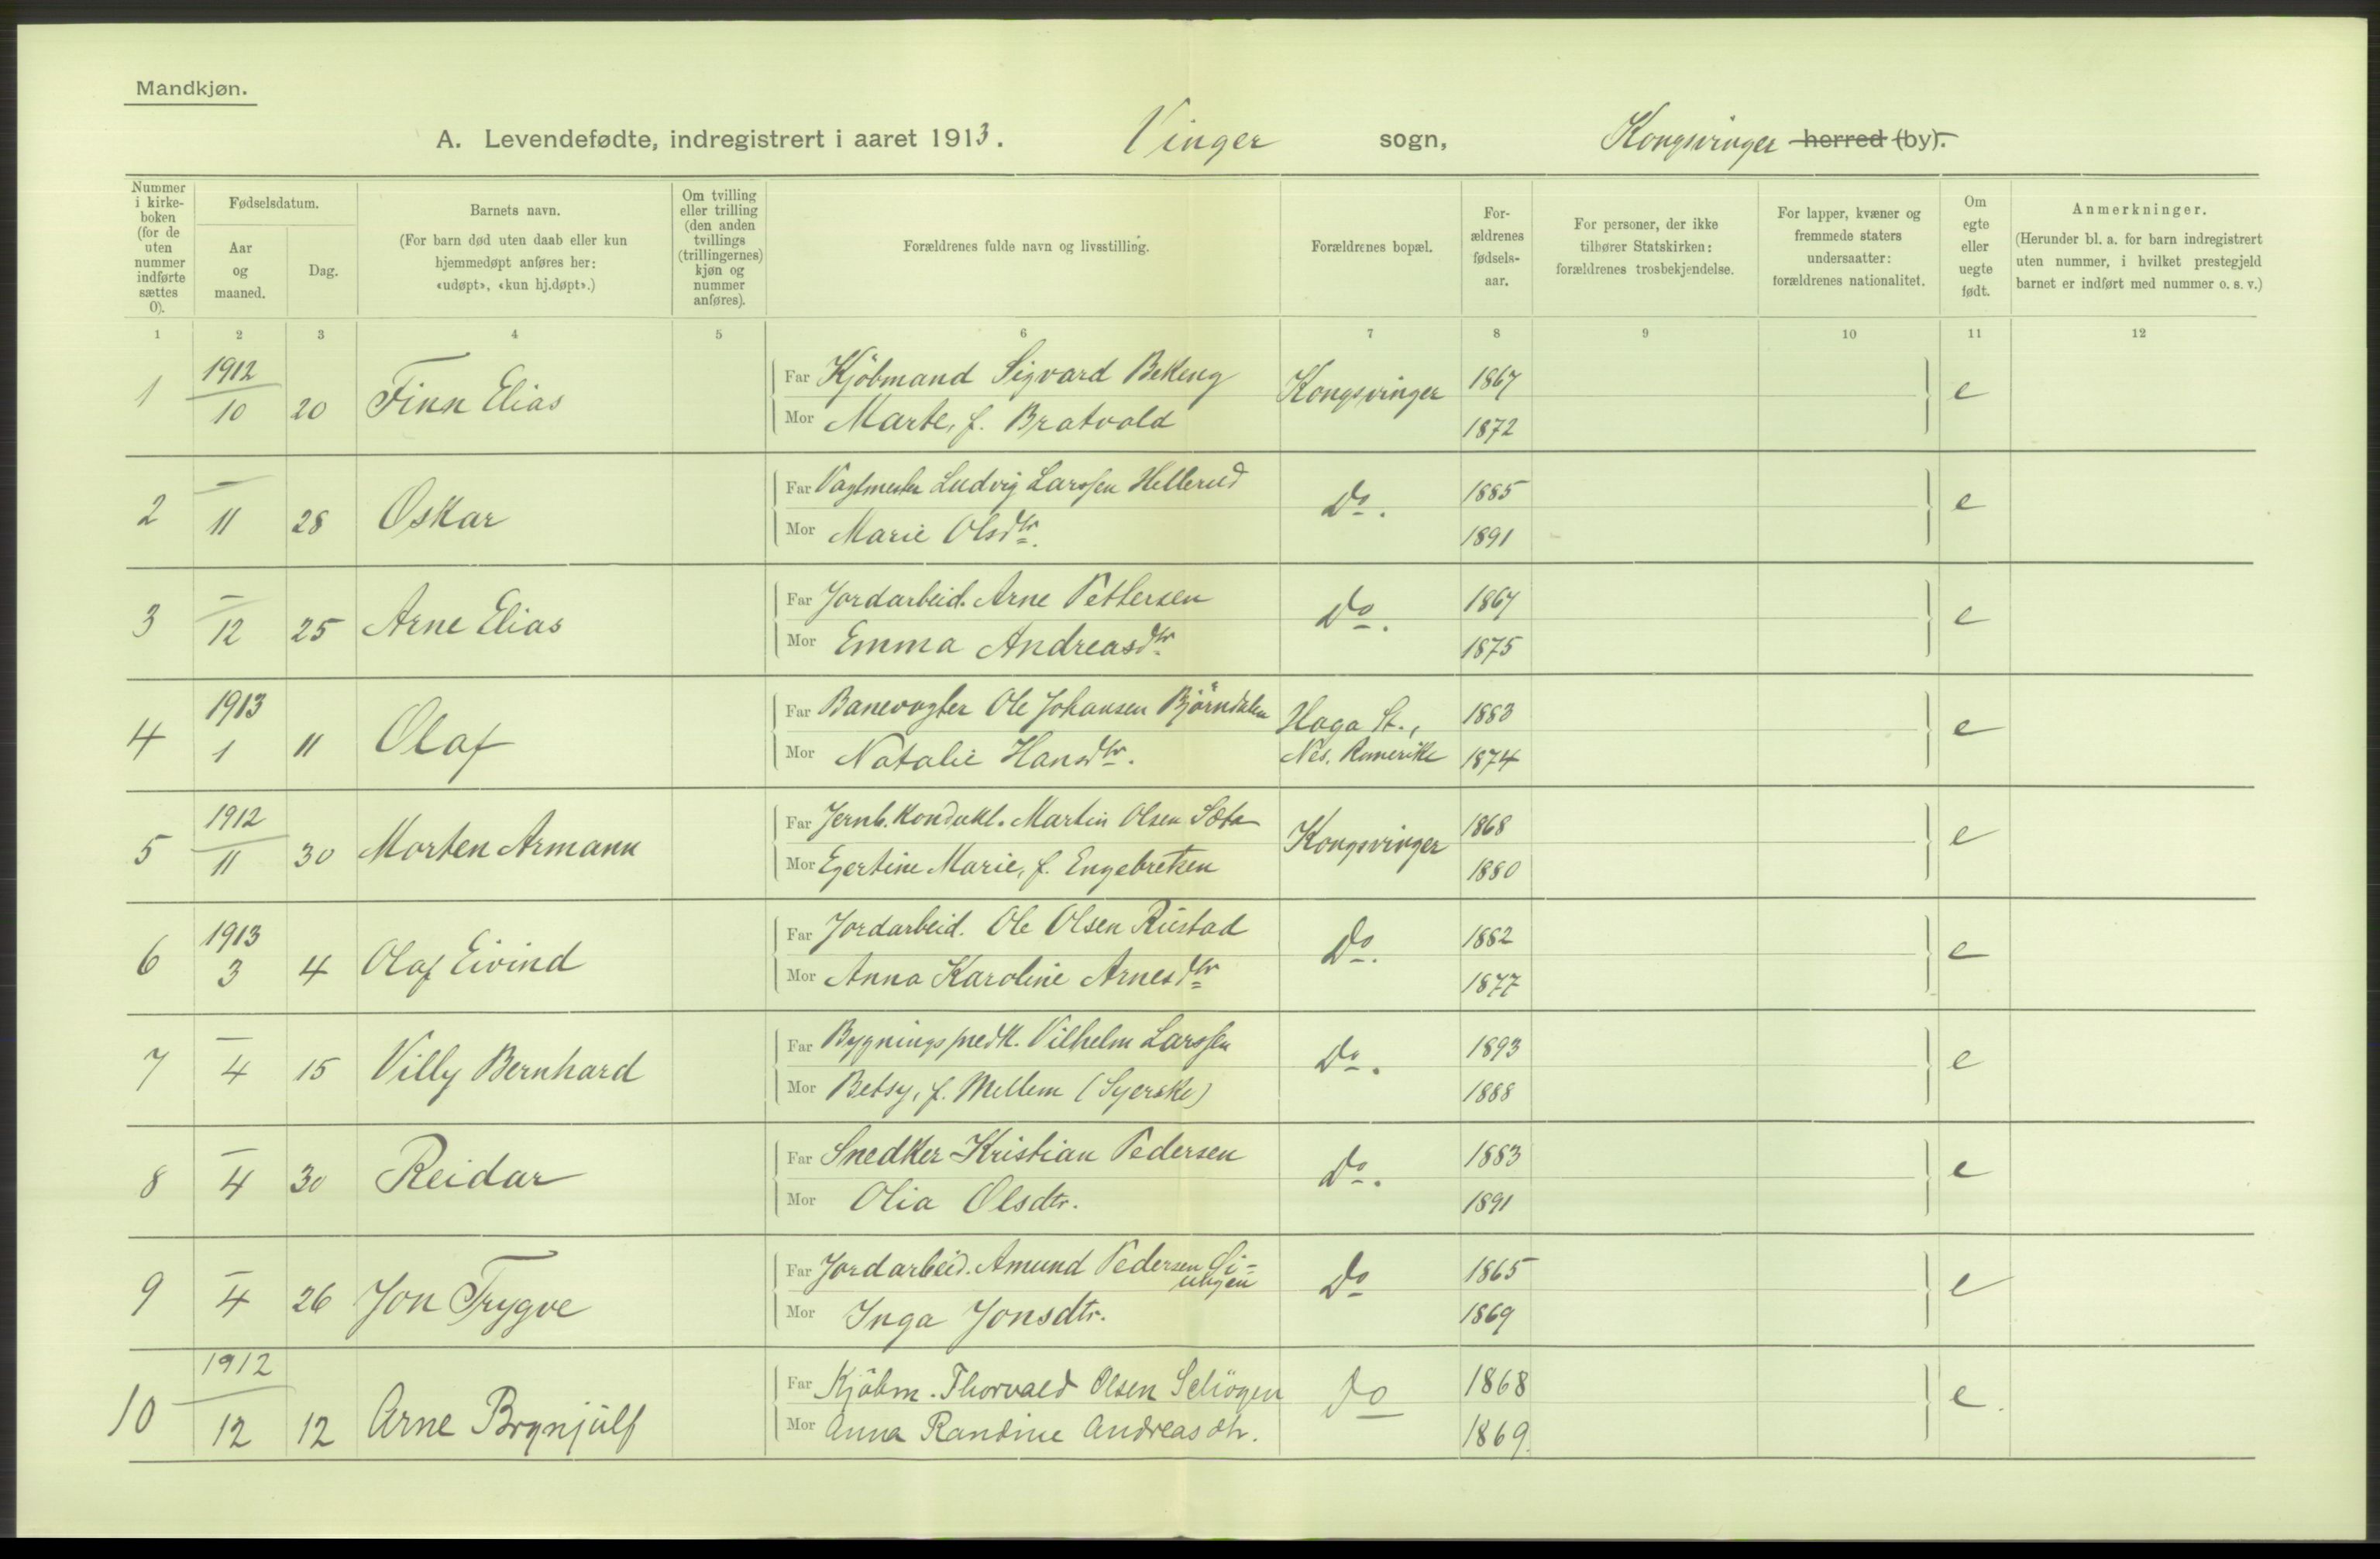 Mandkjøn.
A. Levendefødte, indregistrert i aaret 1913. Vinger sogn, Kongsvinger herred (by).
Nummer i kirke-boken (for de uten nummer indførte sættes 0).
Fødselsdatum.
Aar og maaned.
Dag.
Barnets navn.
(For barn død uten daab eller kun hjemmedøpt anføres her: «udøpt», «kun hj.døpt».)
Om tvilling eller trilling (den anden tvillings (trillingernes) kjøn og nummer anføres).
Forældrenes fulde navn og livsstilling.
Forældrenes bopæl.
For-ældrenes fødsels-aar.
For personer, der ikke tilhører Statskirken: forældrenes trosbekjendelse.
For lapper, kvæner og fremmede staters undersaatter: forældrenes nationalitet.
Om egte eller uegte født.
Anmerkninger.
(Herunder bl. a. for barn indregistrert uten nummer, i hvilket prestegjeld barnet er indført med nummer o. s. v.)
1 2 3 4 5 6 7 8 9 10 11 12
1 1912 10 20 Finn Elias Far Kjöbmand Sigvard Bekeng Kongsvinger 1867 e
Mor Marte, f. Bratvold 1872
2 – 11 28 Oskar Far Vagtmester Ludvig Larssen Hellerud Do. 1885 e
Mor Marie Olsdtr. 1891
3 – 12 25 Arne Elias Far Jordarbeid. Arne Pettersen Do. 1867 e
Mor Emma Andreasdtr. 1875
4 1913 1 11 Olaf Far Banevogter Ole Johansen Björndalen Haga St., 1883 e
Mor Natalie Hansdtr. Nes, Romerike 1874
5 1912 11 30 Morten Armann Far Jernb. kondukt. Martin Olsen Sæta Kongsvinger 1868 e
Mor Egertine Marie, f. Engebretsen 1880
6 1913 3 4 Olaf Eivind Far Jordarbeid. Ole Olsen Rustad Do. 1882 e
Mor Anna Karoline Arnesdtr 1877
7 – 4 15 Villy Bernhard Far Bygningssnedk. Vilhelm Larssen Do. 1893 e
Mor Betsy, f. Mellem (Syerske) 1888
8 – 4 30 Reidar Far Snedker Kristian Pedersen Do. 1883 e
Mor Olia Olsdtr. 1891
9 – 4 26 Jon Trygve Far Jordarbeid. Amund Pedersen Do 1865 e
Mor Inga Jonsdtr. 1869
10 1912 12 12 Arne Brynjulf Far Kjöbm. Thorvald Olsen Do 1868 e.
Mor Anna Randine Andreasdtr. 1869.